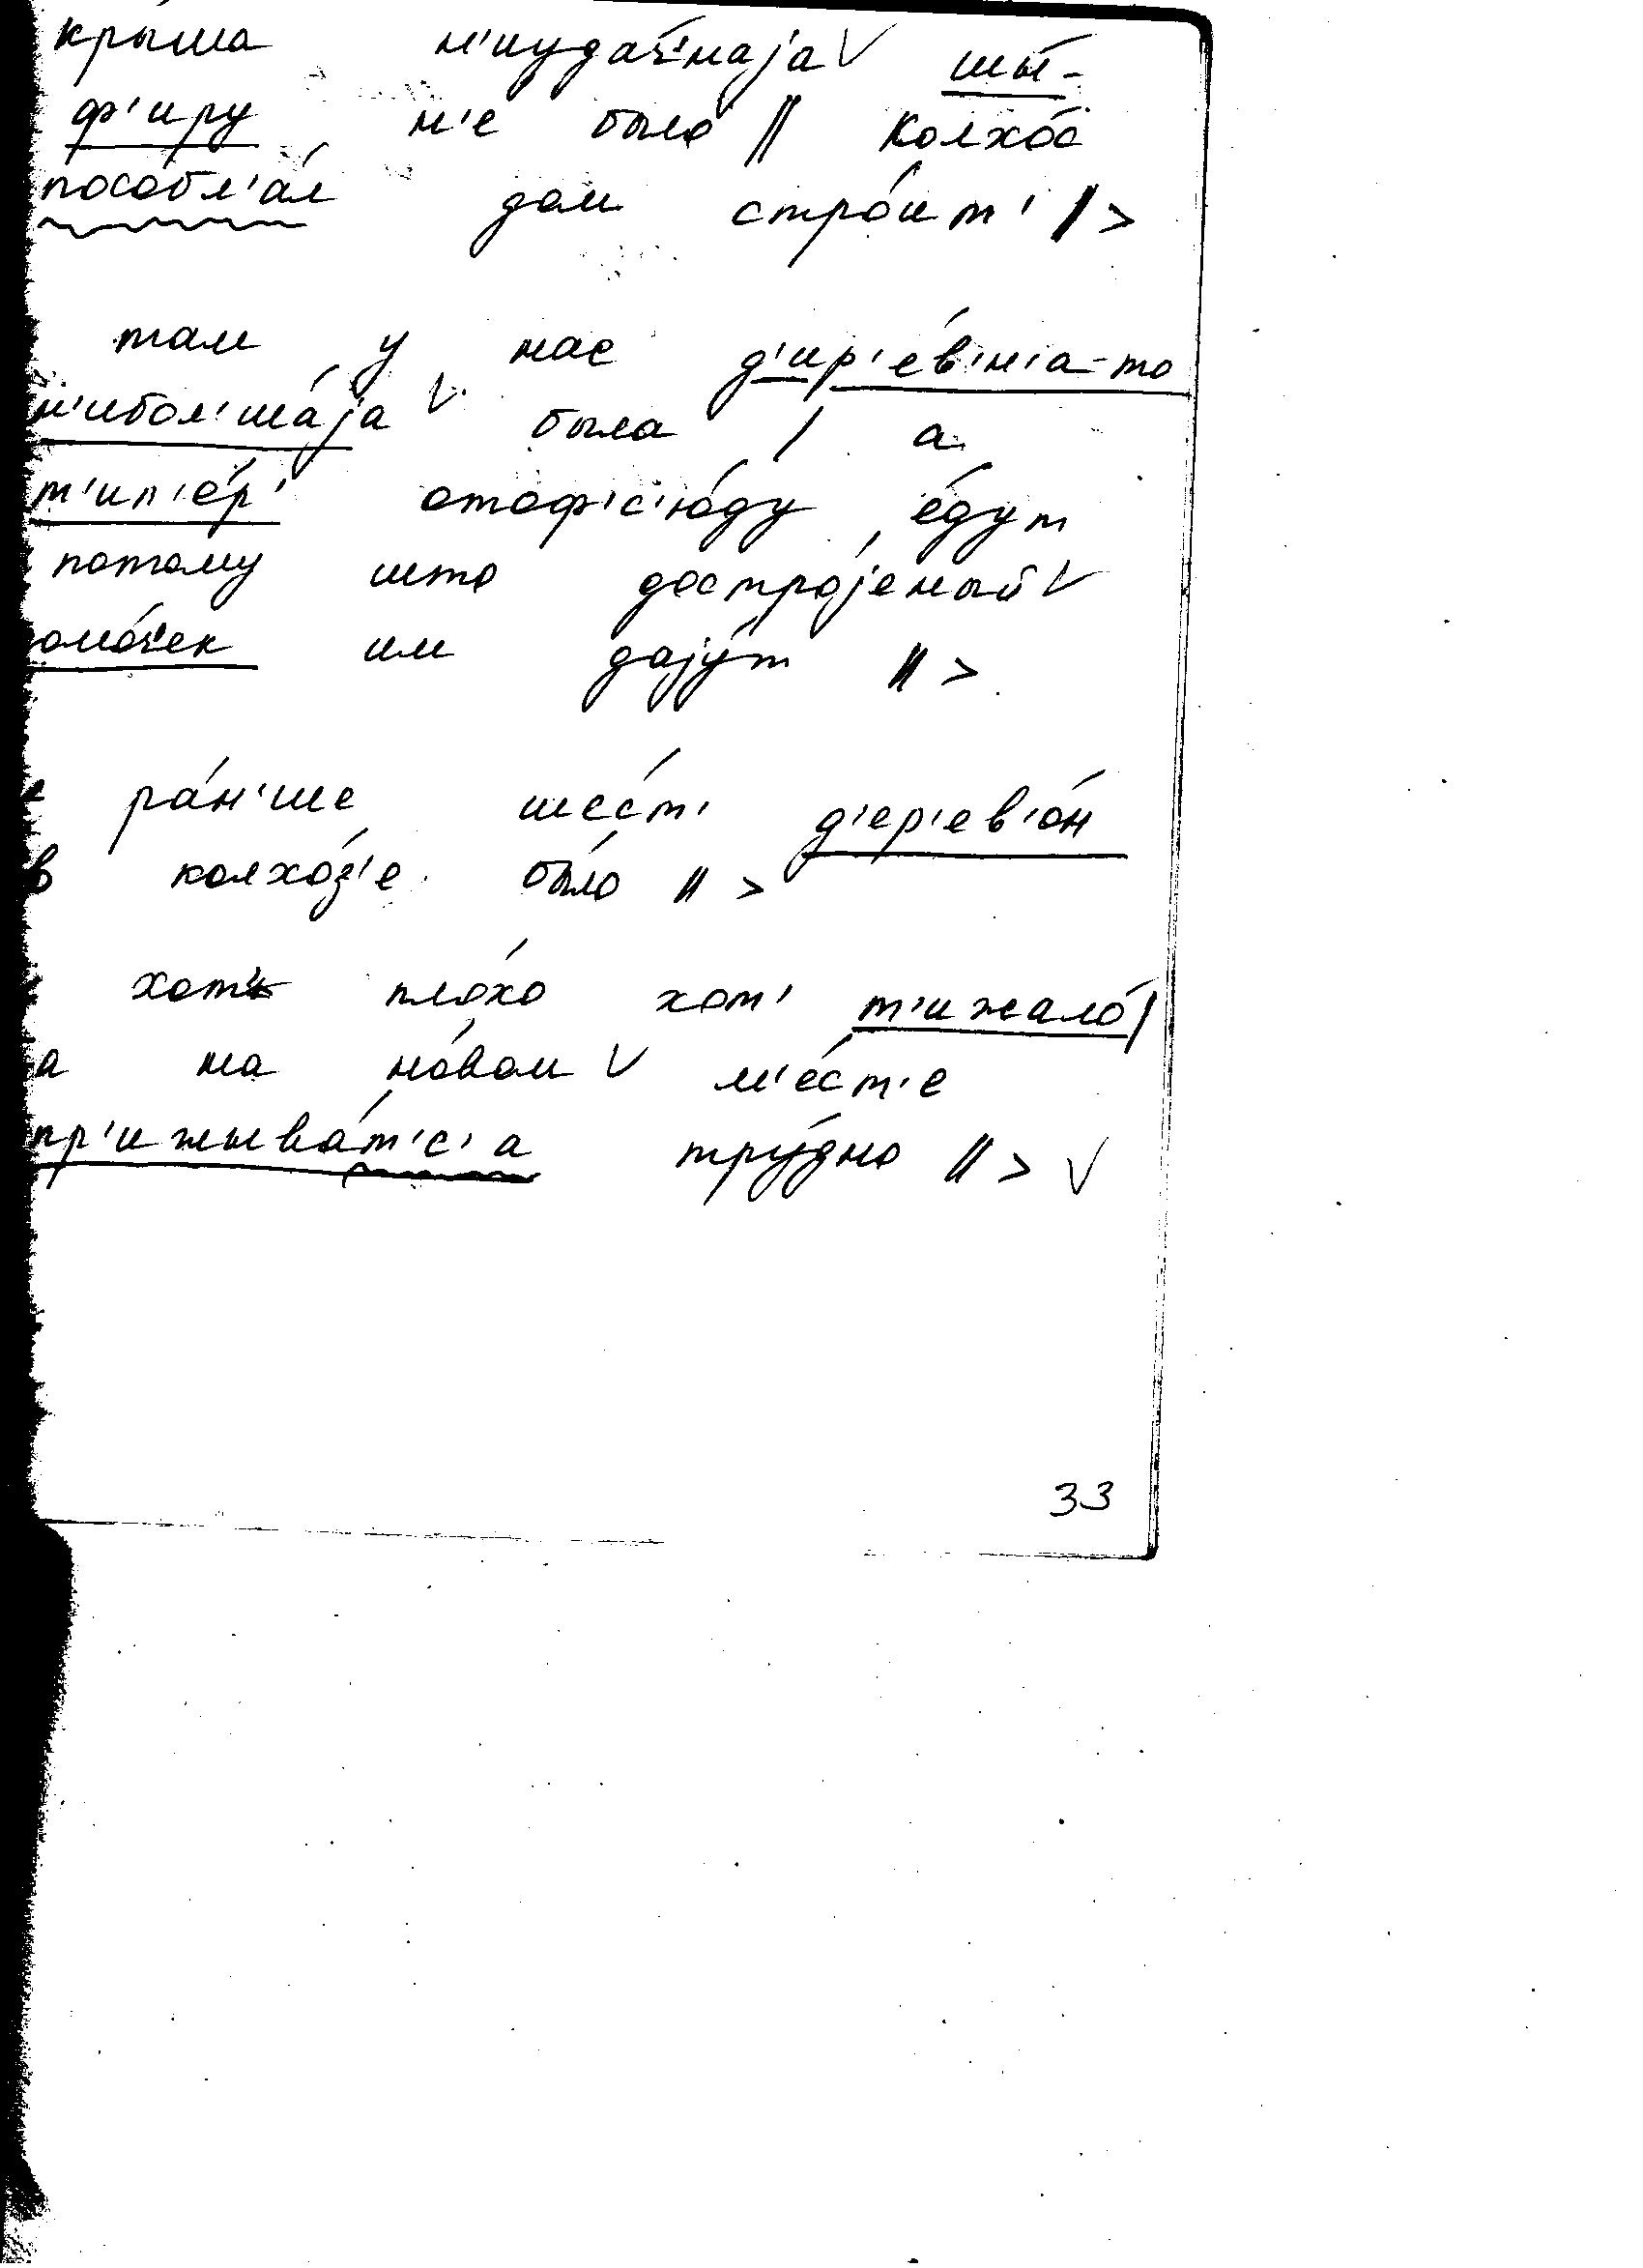 кры́ша н'иуда́ч'наја V шы́-
ф'иру н'е было // колхо́с
пособл'а́л дом стро́ит' // >
там у нас д'ир'е́в'н'а-то
н'ибол'ша́ја V была / а
т'ип'е́р' отоф'с'у́ду е́дут
потому што достро́јеный V
омо́ч'ек им даjу́т // >
ра́н'ше шес'т' д'ер'ев'о́н
в колхо́з'е бы́ло // >
хот' пло́хо хот' т'ижало́ /
а на но́вом V м'е́ст'е
пр'ижыва́т'с'а тру́дно // > V
33